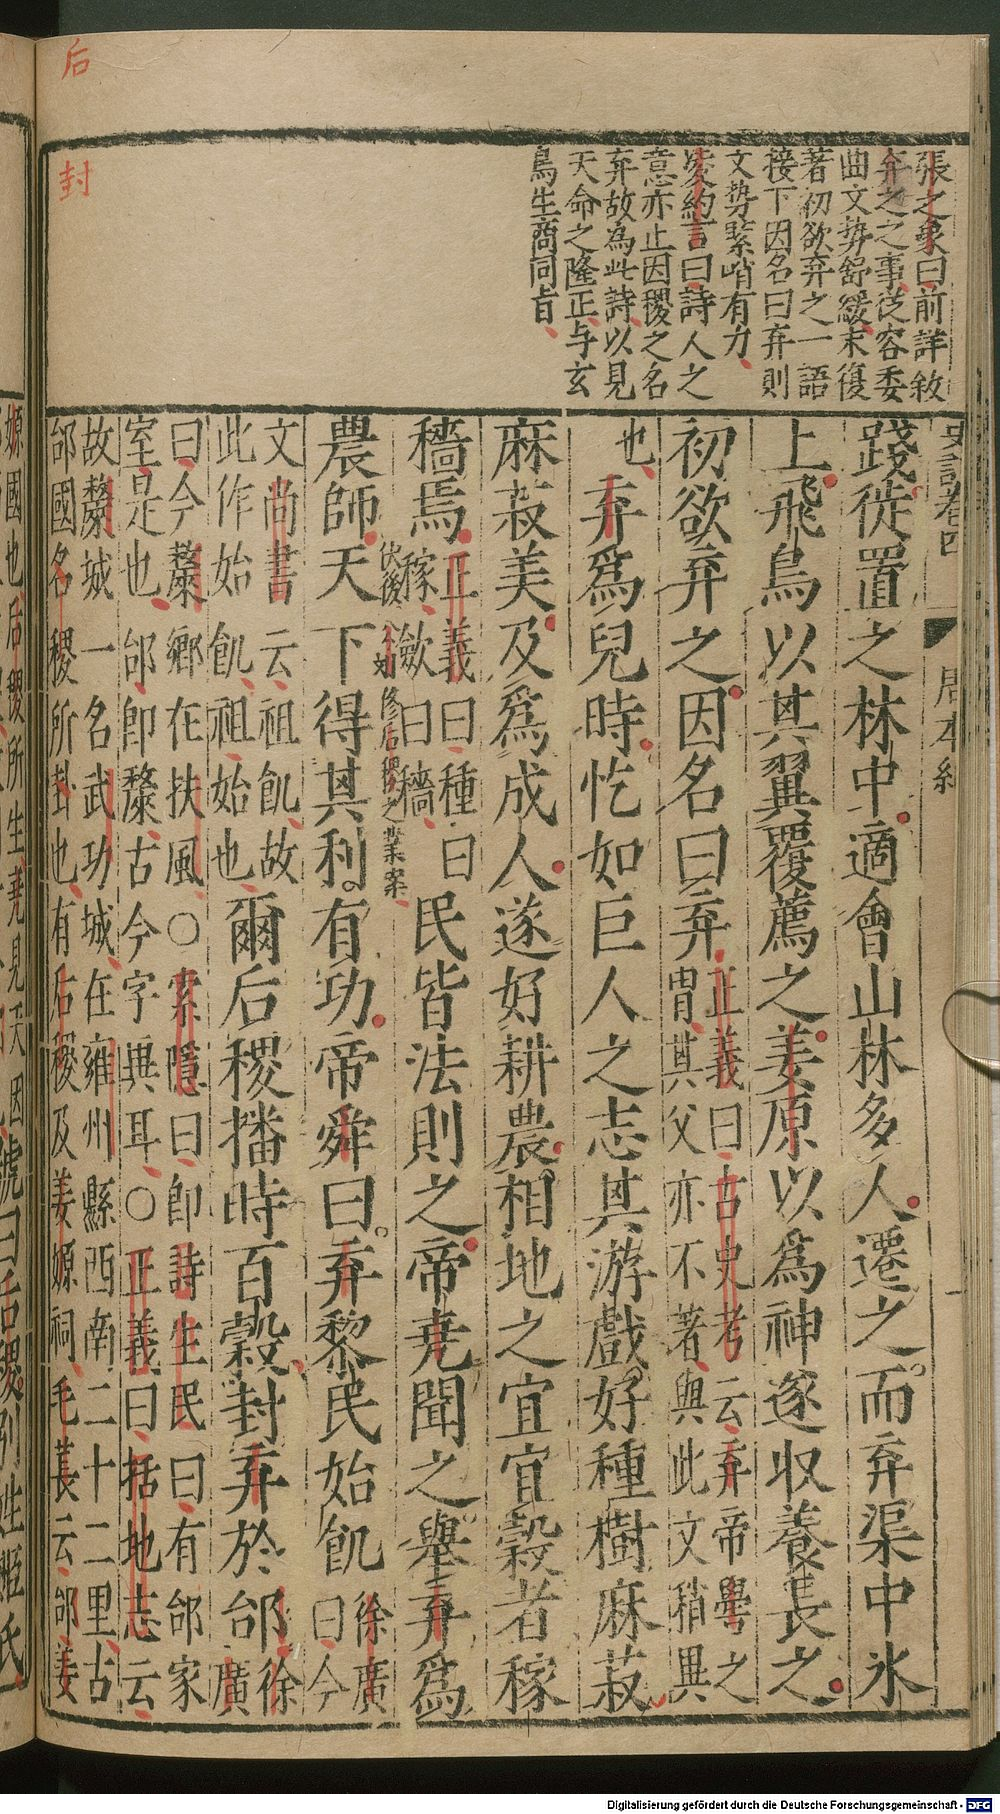 后
封
張之象曰前詳敘
弃之之事從容委
曲文勢舒緩末復
著初欲弃之一語
接下因名曰弃則
文勢緊峭有力
凌約言曰詩人之
意亦止因稷之名
弃故為此詩以見
天命之隆正与玄
鳥生商同旨
史記卷四 周本紀 一
踐徙置之林中適會山林多人遷之而弃渠中氷
上飛鳥以其翼覆薦之姜原以爲神遂收養長之
初欲弃之因名曰弃
正義曰古史考云弃帝嚳之
冑其父亦不著與此文稍異
也弃爲兒時忔如巨人之志其游戲好種樹麻菽
麻菽美及爲成人遂好耕農相地之宜宜穀者稼
穡焉
正義曰種曰
稼歛曰穡
民皆法則之帝堯聞之舉弃爲
農師天下得其利有功帝舜曰弃黎民始飢
徐廣
曰今
文尚書云祖飢故
此作始飢祖始也
爾后稷播時百穀封弃於邰
徐
廣
曰今斄鄉在扶風○索隱曰即詩生民曰有邰家
室是也邰即斄古今字異耳○正義曰括地志云
故斄城一名武功城在雍州縣西南二十二里古
邰國名稷所封也有后稷及姜嫄祠毛萇云邰姜
嫄國也后稷所生堯見天因
號曰后稷別姓姬氏
Digitalisierung gefördert durch die Deutsche Forschungsgemeinschaft - DFG